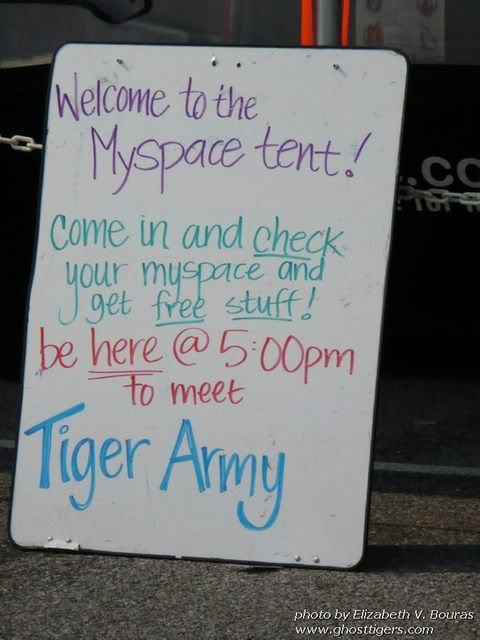 Welcome to the
Myspace tent!
Come in and check
your myspace and
get free stuff!
be here @ 5:00pm
to meet
Tiger Army
.cc
photo by Elizabeth V. Bouras
www.ghosttigers.com